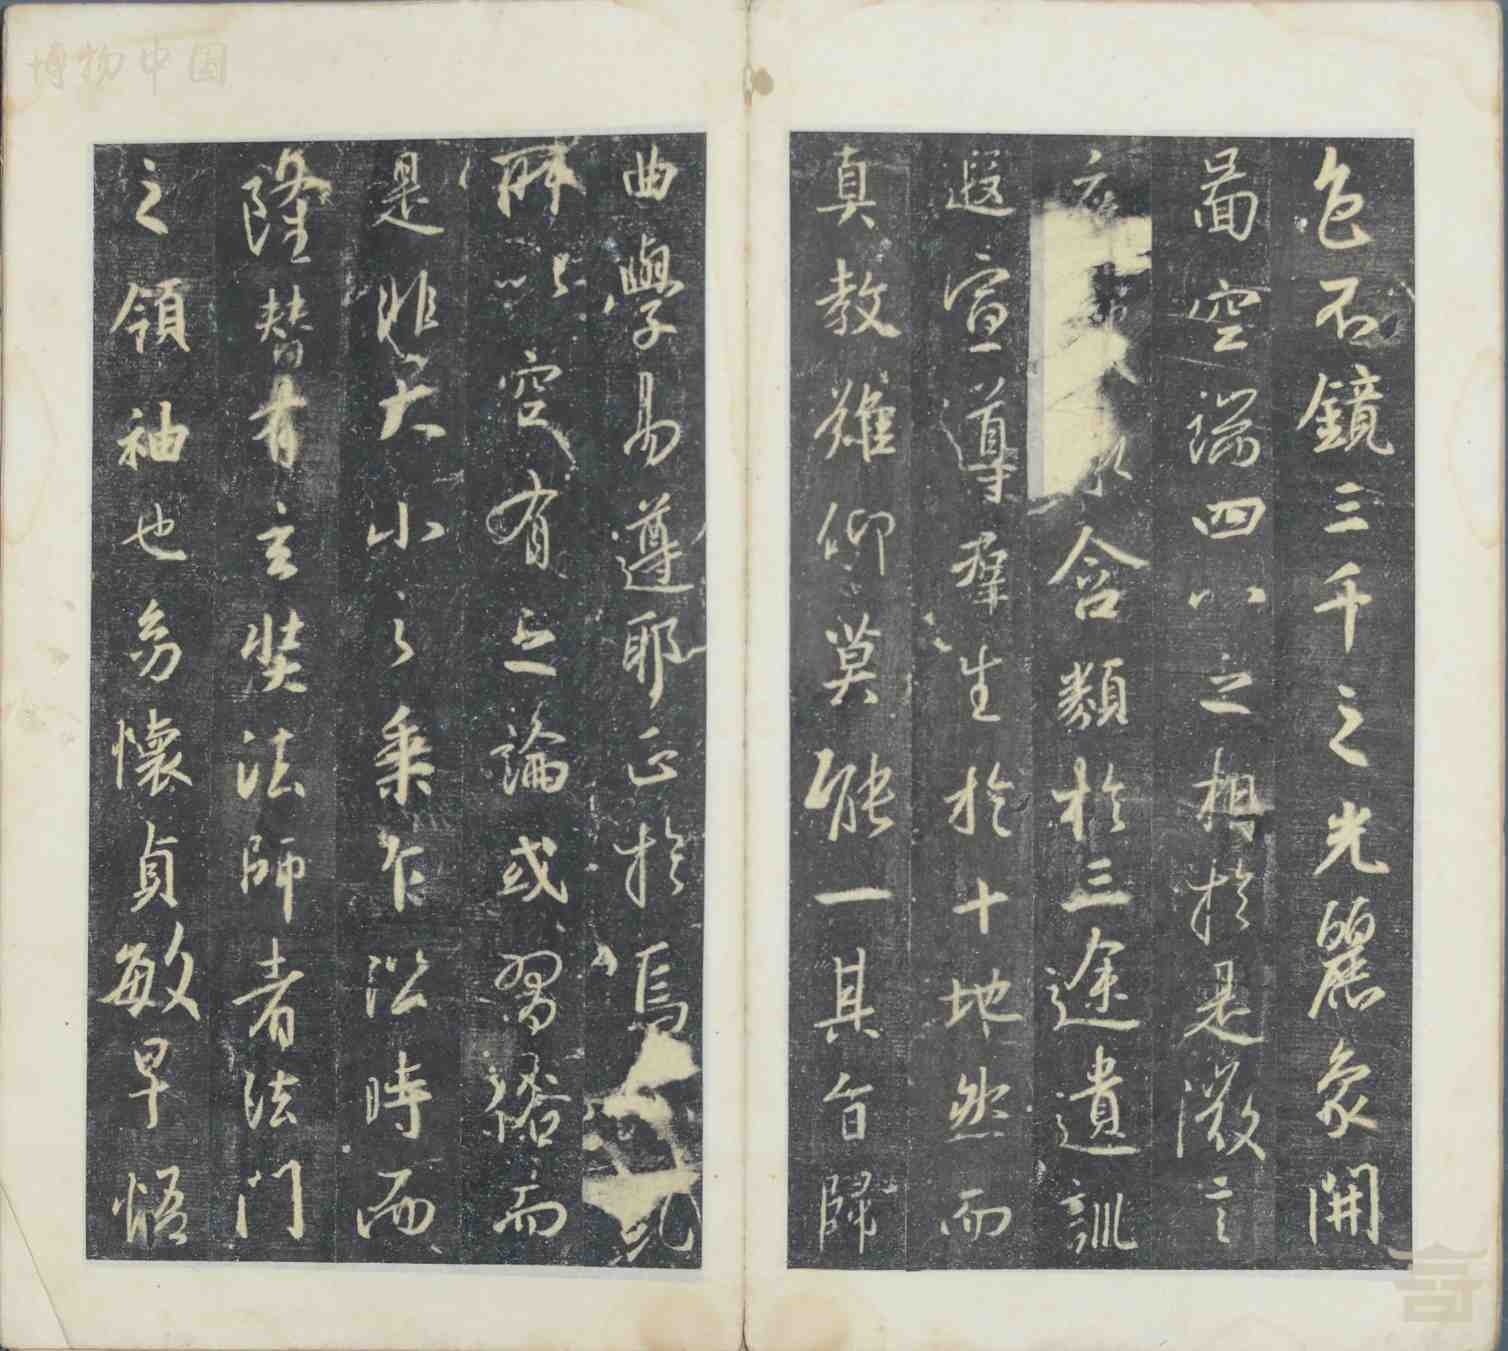 色不鏡三千之光麗象開
啚空端四八之相於是微言
含類於三途遺訓
遐宣導羣生於十地然而
真教難仰莫能一其旨歸
曲學易遵耶正於焉糺
所以空有之論或習俗而
是非大小之乘乍沿時而
隆替有玄奘法師者法門
之領袖也幼懷貞敏早悟
博物中國